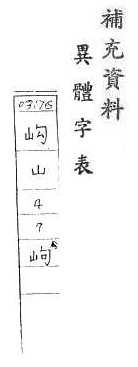 補充資料
異體字表
03176
岣
山
4
7
岣